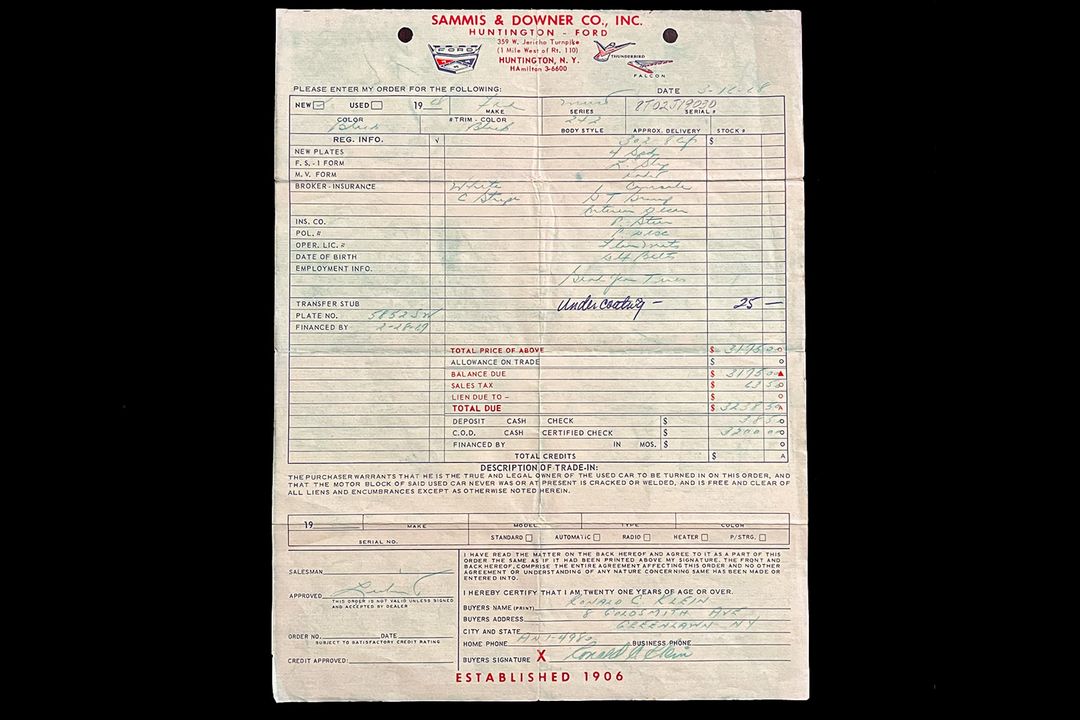 SAMMIS & DOWNER CO., INC.
HUNTINGTON - FORD
359 W. Jericho Turnpike
(1 Mile West of Rt. 110)
HUNTINGTON, N. Y.
HAmilton 3-6600
FORD
THUNDERBIRD
FALCON
PLEASE ENTER MY ORDER FOR THE FOLLOWING: DATE
NEW USED 19 68 MAKE SERIES 8T02J19030 SERIAL #
COLOR # TRIM - COLOR BODY STYLE APPROX. DELIVERY STOCK #
Black Black
REG. INFO. √ 302 8 Cyl $
NEW PLATES 4 Spd
F. S. - 1 FORM
M. V. FORM
BROKER - INSURANCE White Console
C Stripe
Interior Decor
INS. CO. P. Steer
POL. # P. Disc
OPER. LIC. # Floor Mats
DATE OF BIRTH Belts
EMPLOYMENT INFO.
Tires
TRANSFER STUB Undercoating — 25 —
PLATE NO.
FINANCED BY 2-28-69
TOTAL PRICE OF ABOVE $ 3175 00
ALLOWANCE ON TRADE $
BALANCE DUE $ 3175 00
SALES TAX $ 63 50
LIEN DUE TO - $
TOTAL DUE $ 3238 50
DEPOSIT CASH CHECK $ 38 50
C.O.D. CASH CERTIFIED CHECK $ 3200 00
FINANCED BY IN MOS. $
TOTAL CREDITS $
DESCRIPTION OF TRADE-IN:
THE PURCHASER WARRANTS THAT HE IS THE TRUE AND LEGAL OWNER OF THE USED CAR TO BE TURNED IN ON THIS ORDER, AND
THAT THE MOTOR BLOCK OF SAID USED CAR NEVER WAS OR AT PRESENT IS CRACKED OR WELDED, AND IS FREE AND CLEAR OF
ALL LIENS AND ENCUMBRANCES EXCEPT AS OTHERWISE NOTED HEREIN.
19 MAKE MODEL TYPE COLOR
SERIAL NO. STANDARD AUTOMATIC RADIO HEATER P/STRG.
I HAVE READ THE MATTER ON THE BACK HEREOF AND AGREE TO IT AS A PART OF THIS
ORDER THE SAME AS IF IT HAD BEEN PRINTED ABOVE MY SIGNATURE. THE FRONT AND
BACK HEREOF, COMPRISE THE ENTIRE AGREEMENT AFFECTING THIS ORDER AND NO OTHER
AGREEMENT OR UNDERSTANDING OF ANY NATURE CONCERNING SAME HAS BEEN MADE OR
ENTERED INTO.
SALESMAN
I HEREBY CERTIFY THAT I AM TWENTY ONE YEARS OF AGE OR OVER.
APPROVED
THIS ORDER IS NOT VALID UNLESS SIGNED
AND ACCEPTED BY DEALER
BUYERS NAME (PRINT) RONALD C. KLEIN
BUYERS ADDRESS 8 GOLDSMITH AVE
CITY AND STATE GREENLAWN NY
ORDER NO. DATE
SUBJECT TO SATISFACTORY CREDIT RATING
HOME PHONE AN 1-4980 BUSINESS PHONE
CREDIT APPROVED:
BUYERS SIGNATURE X Ronald C Klein
ESTABLISHED 1906